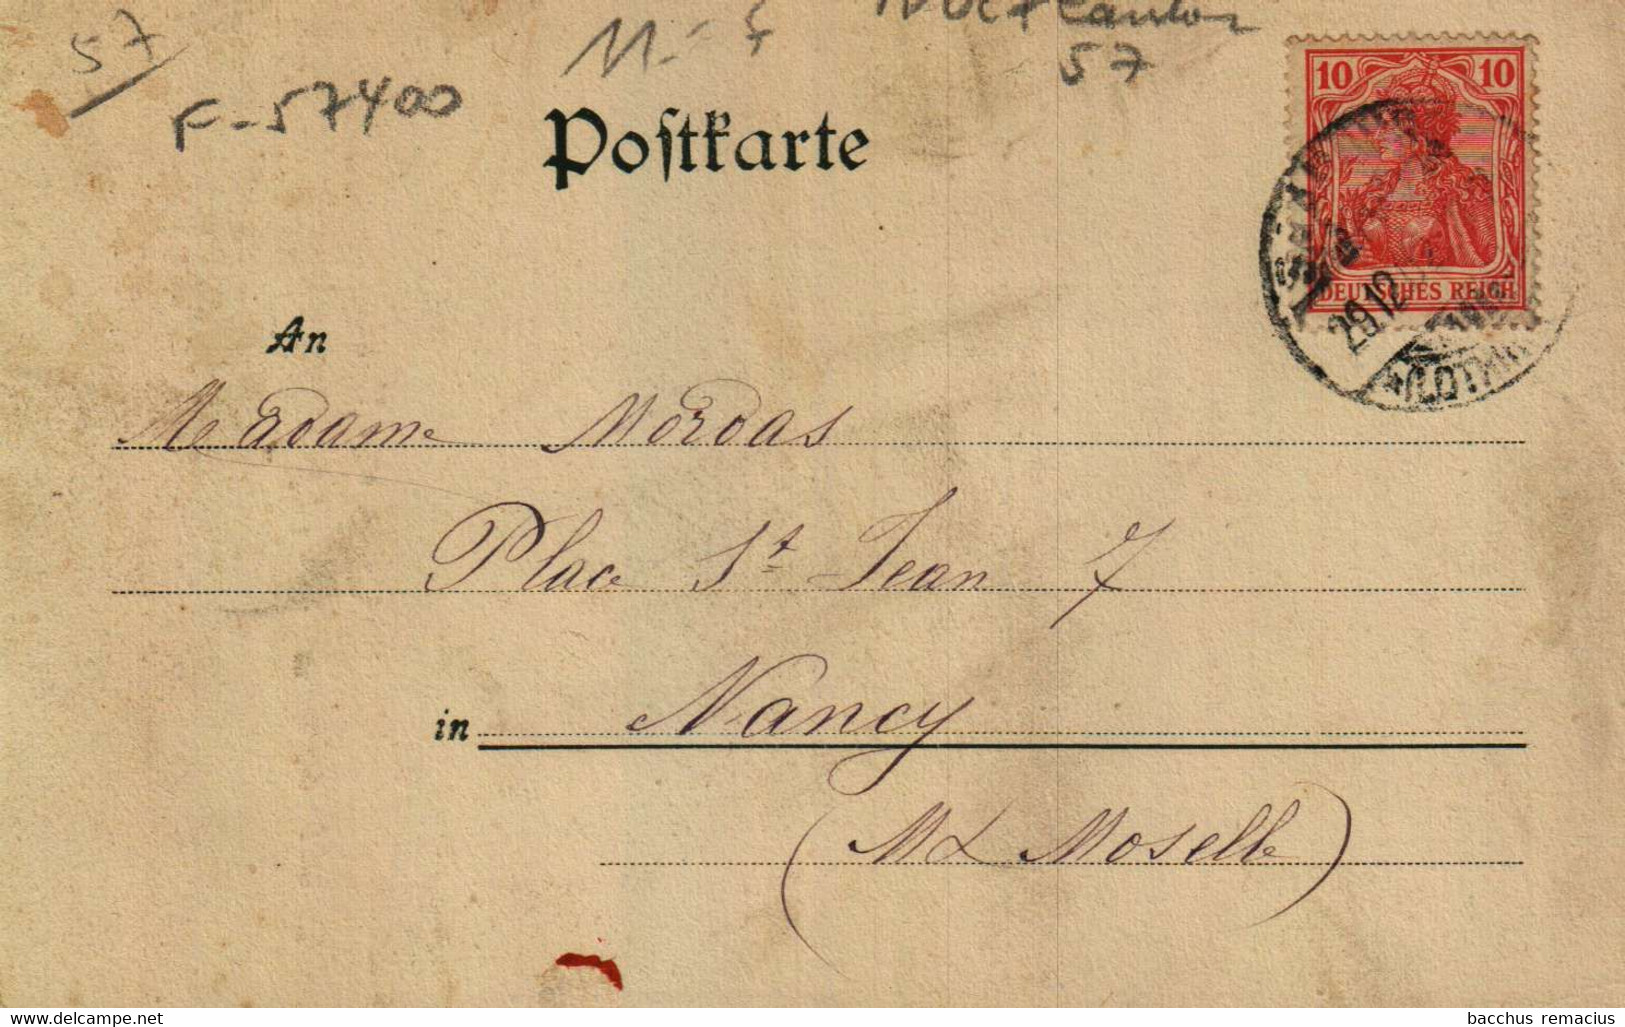 57
F-57400
57
Postkarte
10 10
DEUTSCHES REICH
29.12
(LOTHR
An
Madame Mordas
Place St Jean 7
in Nancy
(Mt Moselle)
www.delcampe.net
bacchus remacius